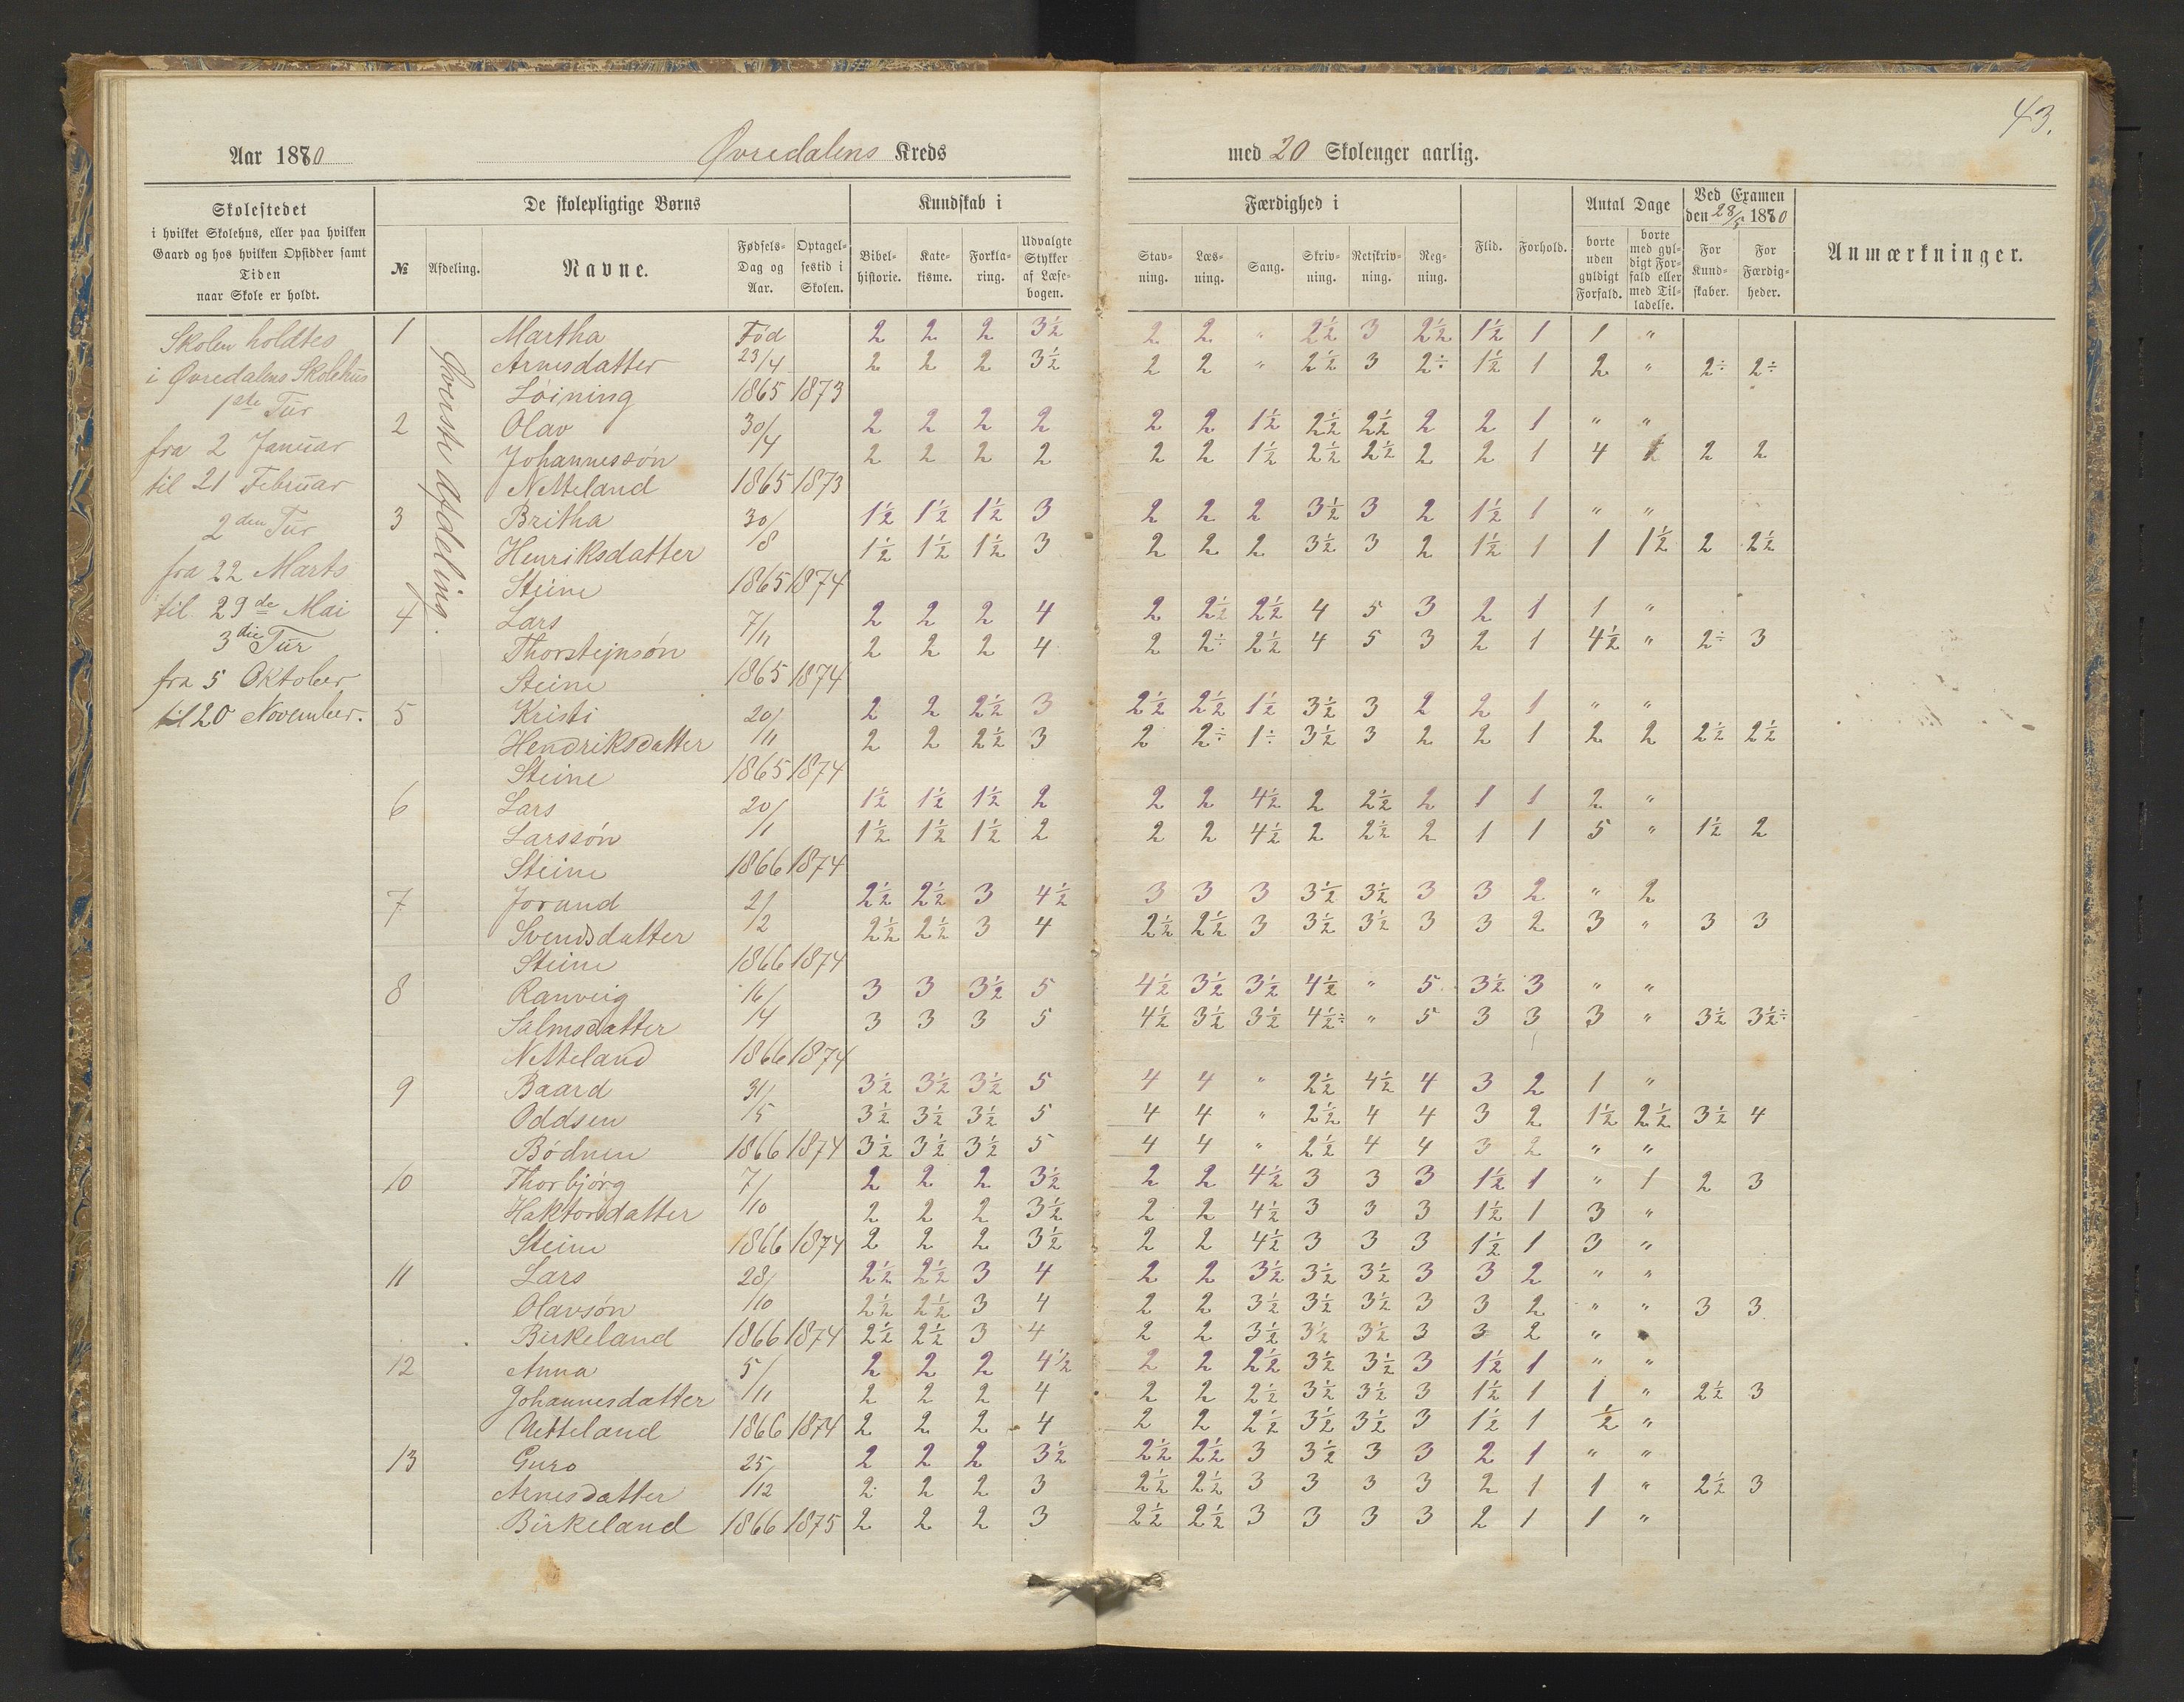 43.
Aar 1880 Øvredalens Kreds med 20 Skoleuger aarlig.
Skolestedet
i hvilket Skolehus, eller paa hvilken
Gaard og hos hvilken Opsidder samt
Tiden
naar Skole er holdt.
De skolepligtige Børns
№
Afdeling.
Navne.
Fødsels-
Dag og
Aar.
Optagel-
sestid i
Skolen.
Kundskab i
Bibel-
historie.
Kate-
kisme.
Forkla-
ring.
Udvalgte
Stykker
af Læse-
bogen.
Færdighed i
Stav-
ning.
Læs-
ning.
Sang.
Skriv-
ning.
Retskriv-
ning.
Reg-
ning.
Flid.
Forhold.
Antal Dage
borte
uden
gyldigt
Forfald.
borte
med gyl-
digt For-
fald eller
med Til-
ladelse.
Ved Examen
den 28/5 1880
For
Kund-
skaber.
For
Færdig-
heder.
Anmærkninger.
Skolen holdtes
i Øvredalens Skolehus
1ste Tur
fra 2 Januar
til 21 Februar
2den Tur
fra 22 Marts
til 29de Mai
3die Tur
fra 5 Oktober
til 20 November.
Øverste Afdeling.
1 Martha Fød 2 2 2 3½ 2 2 " 2½ 3 2½ 1½ 1 1 "
Arnesdatter 23/4 2 2 2 3½ 2 2 " 2½ 3 2÷ 1½ 1 2 " 2÷ 2÷
Løining 1865 1873
2 Olav 30/4 2 2 2 2 2 2 1½ 2½ 2½ 2 2 1 " "
Johannessøn 2 2 2 2 2 2 1½ 2½ 2½ 2 2 1 4 2 2
Netteland 1865 1873
3 Britha 30/8 1½ 1½ 1½ 3 2 2 2 3½ 3 2 1½ 1 " "
Henriksdatter 1½ 1½ 1½ 3 2 2 2 3½ 3 2 1½ 1 1 1½ 2 2½
Steine 1865 1874
4 Lars 7/11 2 2 2 4 2 2½ 2½ 4 5 3 2 1 1 "
Thorstejnsøn 2 2 2 4 2 2÷ 2½ 4 5 3 2 1 4½ " 2÷ 3
Steine 1865 1874
5 Kristi 20/11 2 2 2½ 3 2½ 2½ 1½ 3½ 3 2 2 1 " "
Hendriksdatter 2 2 2½ 3 2 2÷ 1÷ 3½ 3 2 2 1 2 2 2½ 2½
Steine 1865 1874
6 Lars 20/1 1½ 1½ 1½ 2 2 2 4½ 2 2½ 2 1 1 2 "
Larssøn 1½ 1½ 1½ 2 2 2 4½ 2 2½ 2 1 1 5 " 1½ 2
Steine 1866 1874
7 Jorund 2/2 2½ 2½ 3 4½ 3 3 3 3½ 3½ 3 3 2 " 2
Svendsdatter 2½ 2½ 3 4 2½ 2½ 3 3½ 3½ 3 3 2 3 " 3 3
Steine 1866 1874
8 Ranveig 16/4 3 3 3½ 5 4½ 3½ 3½ 4½ " 5 3½ 3 " "
Salmsdatter 3 3 3 5 4½ 3½ 3½ 4½÷ " 5 3 3 3 " 3½ 3½÷
Netteland 1866 1874
9 Baard 31/5 3½ 3½ 3½ 5 4 4 " 2½ 4½ 4 3 2 1 "
Oddsen 3½ 3½ 3½ 5 4 4 " 2½ 4 4 3 2 1½ 2½ 3½ 4
Bødnen 1866 1874 3½ 3½ 3½ 5 4 4 " 2½ 4 4 3 2 " "
10 Thorbjørg 7/10 2 2 2 3½ 2 2 4½ 3 3 3 1½ 1 " 1 2 3
Haktorsdatter 2 2 2 3½ 2 2 4½ 3 3 3 1½ 1 3 "
Steine 1866 1874 2 2 2 3½ 2 2 4½ 3 3 3 1½ 1 3 "
11 Lars 28/10 2½ 2½ 3 4 2 2 3½ 3½ 3½ 3 3 2 " "
Olavsøn 2½ 2½ 3 4 2 2 3½ 3½ 3½ 3 3 2 " " 3 3
Birkeland 1866 1874 2½ 2½ 3 4 2 2 3½ 3½ 3½ 3 3 2 "
12 Anna 5/11 2 2 2 4½ 2 2 2½ 3½ 3½ 3 1½ 1 " "
Johannesdatter 2 2 2 4 2 2 2½ 3½ 3½ 3 1½ 1 1 " 2½ 3
Netteland 1866 1874 2 2 2 4 2 2 2½ 3½ 3½ 3 1½ 1 ½ "
13 Guro 25/12 2 2 2 3½ 2½ 2½ 3 3½ 3 3 2 1 " "
Arnesdatter 2 2 2 3 2½ 2½ 3 3 3 3 2 1 1 " 2½ 3
Birkeland 1866 1875 2 2 2 3 2½ 2½ 3 3 3 3 2 1 1 "